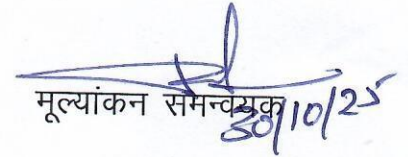 मूल्यांकन समन्वयक
30/10/25